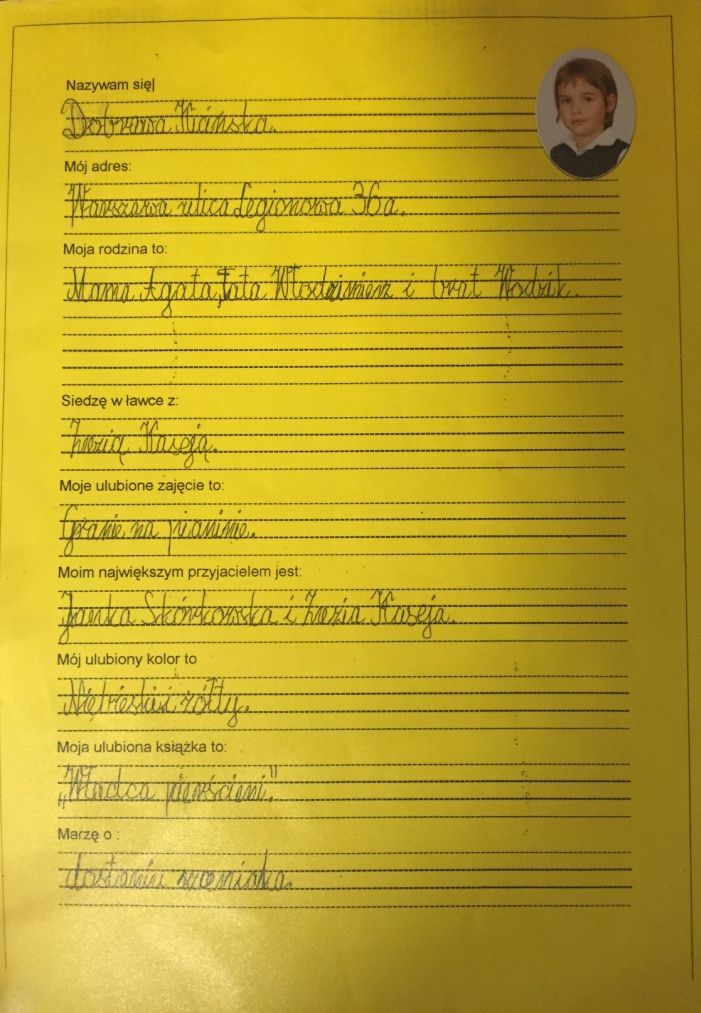 Nazywam się
Dobrawa Kańska.
Mój adres:
Warszawa ulica Legionowa 36a.
Moja rodzina to:
Mama Agata, Tata Włodzimierz i brat Wodzik.
Siedzę w ławce z:
Zuzią Kaseją.
Moje ulubione zajęcie to:
Granie na pianinie.
Moim największym przyjacielem jest:
Janka Skórkowska i Zuzia Kaseja.
Mój ulubiony kolor to
Niebieski i żółty.
Moja ulubiona książka to:
„Władca pierścieni."
Marzę o :
dostaniu